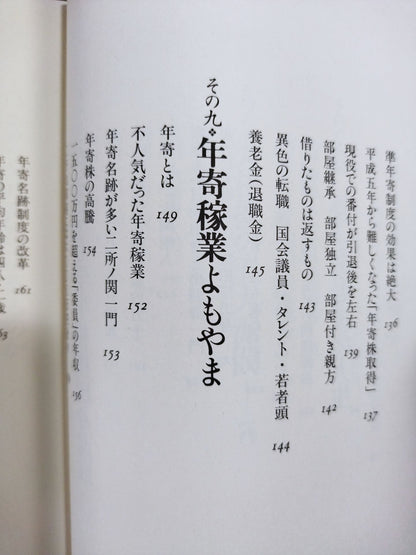 準年寄制度の効果は絶大 136
平成五年から難しくなった「年寄株取得」 137
現役での番付が引退後を左右 139
部屋継承 部屋独立 部屋付き親方 142
借りたものは返すもの 143
異色の転職 国会議員・タレント・若者頭 144
養老金(退職金) 145
その九❖年寄稼業よもやま
年寄とは 149
不人気だった年寄稼業 152
年寄名跡が多い二所ノ関一門 153
年寄株の高騰 154
一五〇〇万円を超える「委員」の年収 156
年寄名跡制度の改革 161